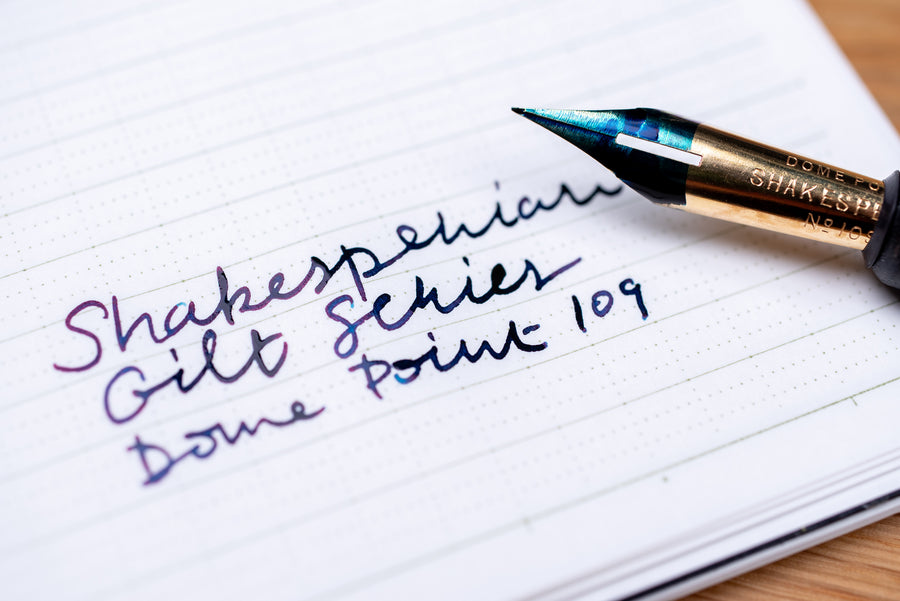 Shakesperian
Gilt Series
Dome Point 109
DOME PO
SHAKESPE
Nº 109